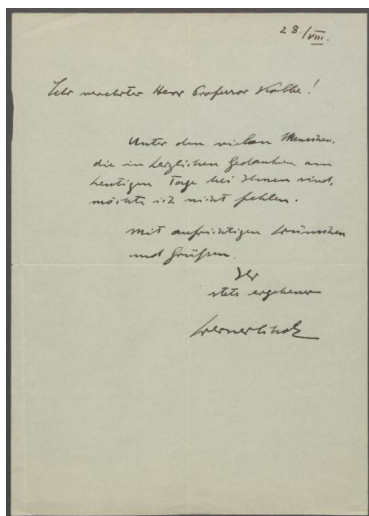 28/VIII.
Sehr verehrter Herr Professor Kolbe!
Unter den vielen Menschen,
die in herzlichen Gedanken am
heutigen Tage bei Ihnen sind,
möchte ich nicht fehlen.
Mit aufrichtigen Wünschen
und Grüßen.
Ihr
stets ergebener
Werner